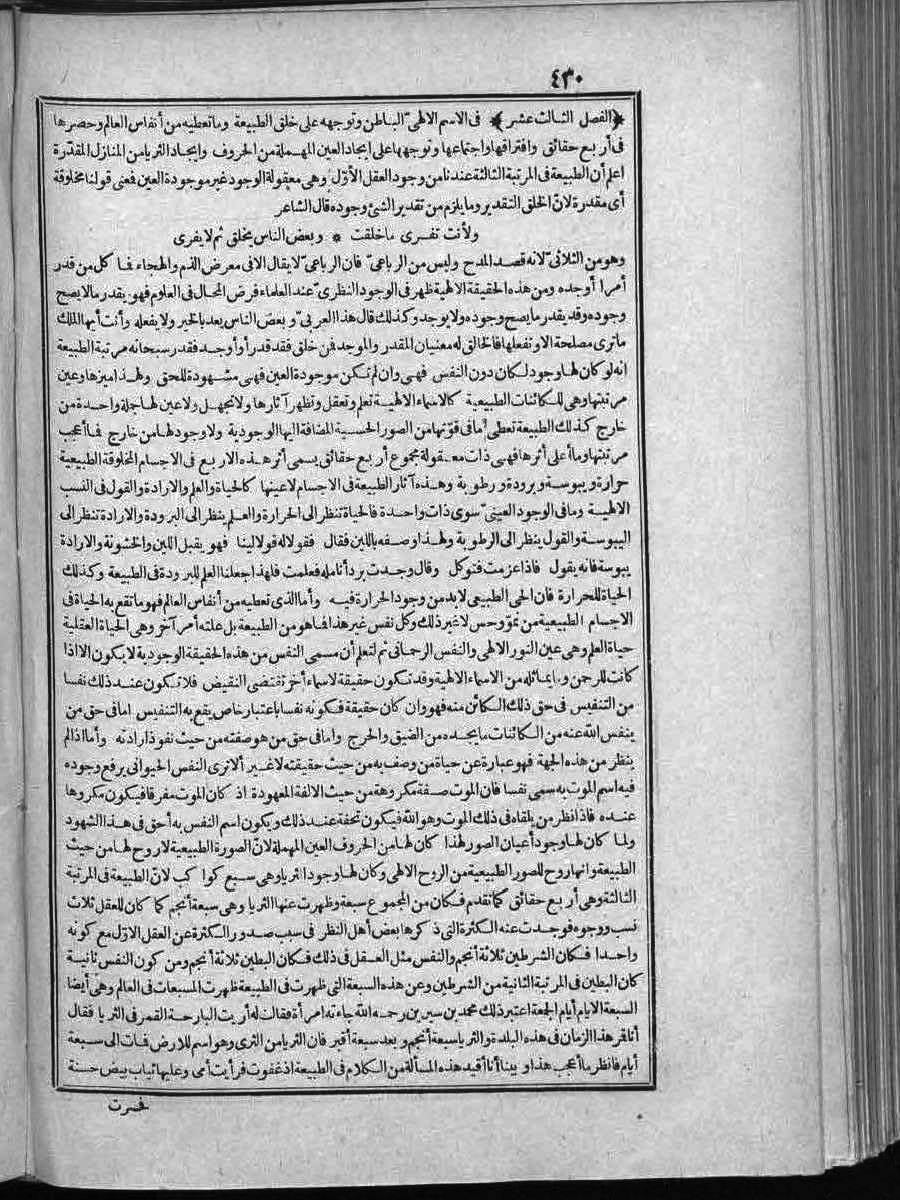 ٤٣٠
﴿الفصل الثالث عشر﴾ فى الاسم الالهى الباطن وتوجهه على خلق الطبيعة وما تعطيه من أنفاس العالم وحصرها
فى أربع حقائق وافتراقها واجتماعها وتوجهها على ايجاد العين المهملة من الحروف وايجاد الثريا من المنازل المقدرة
اعلم أن الطبيعة فى المرتبة الثالثة عندنا من وجود العقل الأوّل وهى معقولة الوجود غير موجودة العين فمعنى قولنا مخلوقة
أى مقدرة لانّ الخلق التقدير وما يلزم من تقدير الشئ وجوده قال الشاعر
ولأنت تفرى ما خلقت * وبعض الناس يخلق ثم لا يفرى
وهو من الثلاثىّ لانه قصد المدح وليس من الرباعىّ فان الرباعىّ لا يقال الا فى معرض الذم والهجاء فما كل من قدر
أمرا أوجده ومن هذه الحقيقة الالهية ظهر فى الوجود النظرىّ عند العلماء فرض المحال فى العلوم فهو يقدر ما لا يصح
وجوده وقد يقدر ما يصح وجوده ولا يوجد وكذلك قال هذا العربىّ وبعض الناس يعد بالخير ولا يفعله وأنت أيها الملك
ما ترى مصلحة الا وتفعلها فالخالق له معنيان المقدر والموجد فمن خلق فقد قدر أو أوجد فقدر سبحانه مرتبة الطبيعة
انه لو كان لها وجود لكان دون النفس فهى وان لم تكن موجودة العين فهى مشهودة للحق ولهذا ميزها وعين
مرتبتها وهى للكائنات الطبيعية كالاسماء الالهية تعلم وتعقل وتظهر آثارها ولا تجهل ولا عين لها جلة واحدة من
خارج كذلك الطبيعة تعطى ما فى قوّتها من الصور الحسية المضافة اليها الوجودية ولا وجود لها من خارج فما أعجب
مرتبتها وما أعلى أثرها فهى ذات معقولة مجموع أربع حقائق يسمى أثر هذه الاربع فى الاجسام المخلوقة الطبيعية
حرارة ويبوسة وبرودة ورطوبة وهذه آثار الطبيعة فى الاجسام لا عينها كالحياة والعلم والارادة والقول فى النسب
الالهية وما فى الوجود العينىّ سوى ذات واحدة فالحياة تنظر الى الحرارة والعلم ينظر الى البرودة والارادة تنظر الى
اليبوسة والقول ينظر الى الرطوبة ولهذا وصفه باللين فقال فقولا له قولا لينا فهو يقبل اللين والخشونة والارادة
يبوسة فانه يقول فاذا عزمت فتوكل وقال وجدت برد أنامله فعلمت فلهذا جعلنا العلم للبرودة فى الطبيعة وكذلك
الحياة للحرارة فان الحى الطبيعى لا بد من وجود الحرارة فيه وأما الذى تعطيه من أنفاس العالم فهو ما تقع به الحياة فى
الاجسام الطبيعية من نموّ وحس لا غير ذلك وكل نفس غير هذا فما هو من الطبيعة بل علته أمر آخر وهى الحياة العقلية
حياة العلم وهى عين النور الالهى والنفس الرحمانى ثم لتعلم أن مسمى النفس من هذه الحقيقة الوجودية لا يكون الا اذا
كانت للرحمن وما يماثله من الاسماء الالهية وقد تكون حقيقة لاسماء أخر تقتضى النقيض فلا تكون عند ذلك نفسا
من التنفيس فى حق ذلك الكائن منه فهو وان كان حقيقة فكونه نفسا باعتبار خاص يقع به التنفيس اما فى حق من
ينفس الله عنه من الكائنات ما يجده من الضيق والحرج واما فى حق من هو صفته من حيث نفوذ ارادته وأما اذا لم
ينظر من هذه الجهة فهو عبارة عن حياة من وصف به من حيث حقيقته لا غير ألا ترى النفس الحيوانى يرفع وجوده
فيه اسم الموت به سمى نفسا فان الموت صفة مكروهة من حيث الالفة المعهودة اذ كان الموت مفرقا فيكون مكروها
عنده فاذا نظر من يلقاه فى ذلك الموت وهو الله فيكون تحفة عند ذلك ويكون اسم النفس به أحق فى هذا الشهود
ولما كان لها وجود أعيان الصور لهذا كان لها من الحروف العين المهملة لانّ الصورة الطبيعية لا روح لها من حيث
الطبيعة وانها روح للصور الطبيعية من الروح الالهى وكان لها وجود الثريا وهى سبع كواكب لانّ الطبيعة فى المرتبة
الثالثة وهى أربع حقائق كما تقدم فكان من المجموع سبعة وظهرت عنها الثريا وهى سبعة أنجم كما كان للعقل ثلاث
نسب ووجوه فوجدت عنه الكثرة التى ذكرها بعض أهل النظر فى سبب صدور الكثرة عن العقل الاوّل مع كونه
واحدا فكان الشرطين ثلاثة أنجم والنفس مثل العقل فى ذلك فكان البطين ثلاثة أنجم ومن كون النفس ثانية
كان البطين فى المرتبة الثانية من الشرطين وعن هذه السبعة التى ظهرت فى الطبيعة ظهرت المسبعات فى العالم وهى أيضا
السبعة الايام أيام الجمعة اعتبر ذلك محمد بن سيرين رحمه الله جاءته امرأة فقالت له أريت البارحة القمر فى الثريا فقال
أنا قر هذا الزمان فى هذه البلدة والثريا سبعة أنجم وبعد سبعة أقبر فان الثريا من الثرى وهو اسم للارض فمات الى سبعة
أيام فانظر ما أعجب هذا وبينا أنا أقيد هذه المسألة من الكلام فى الطبيعة اذ غفوت فرأيت أمى وعليها ثياب بيض حسنة
فحسرت